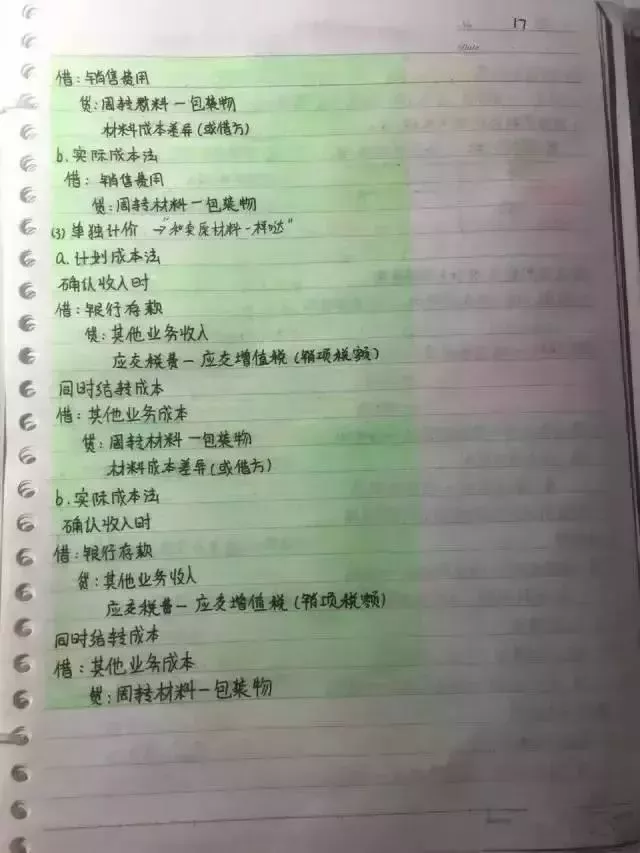 17
Date
借:销售费用
贷:周转材料一包装物
材料成本差异(或借方)
b.实际成本法
借:销售费用
贷:周转材料一包装物
(3)单独计价 →"和卖原材料一样哒"
a.计划成本法
确认收入时
借:银行存款
贷:其他业务收入
应交税费一应交增值税(销项税额)
同时结转成本
借:其他业务成本
贷:周转材料一包装物
材料成本差异(或借方)
b.实际成本法
确认收入时
借:银行存款
贷:其他业务收入
应交税费一应交增值税(销项税额)
同时结转成本
借:其他业务成本
贷:周转材料一包装物